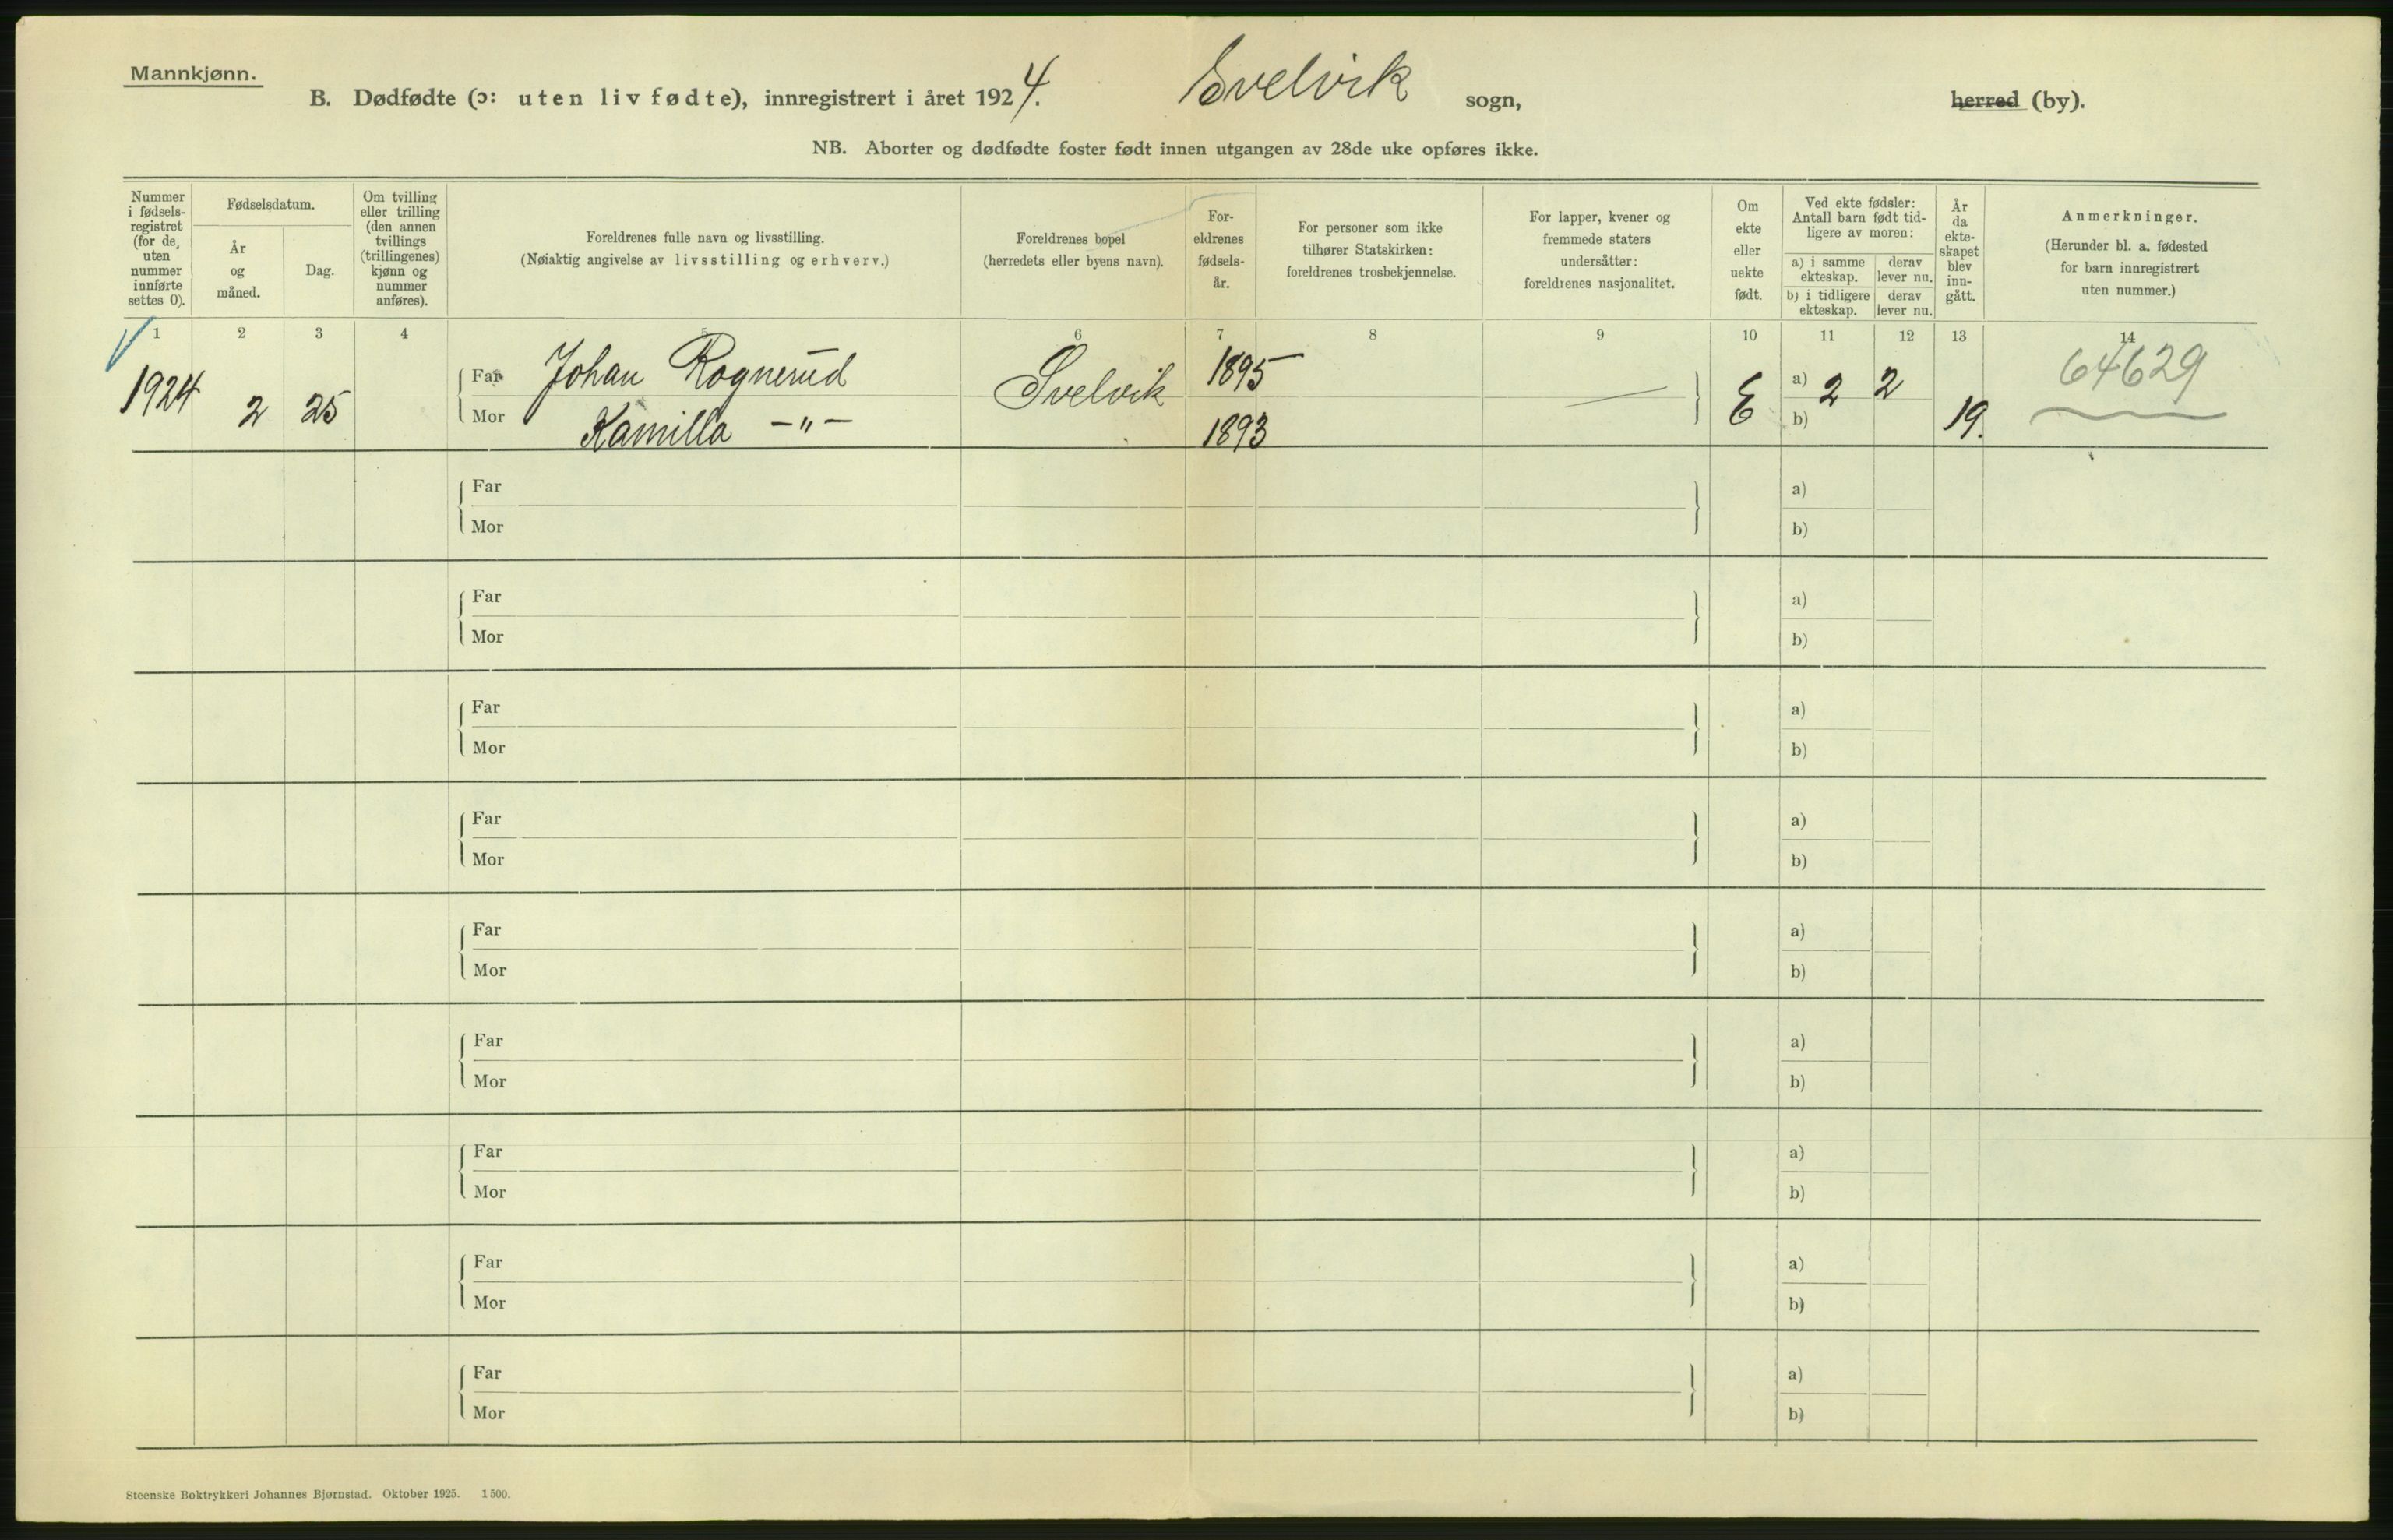 Mannkjønn.
B. Dødfødte (ɔ: uten liv fødte), innregistrert i året 1924. Svelvik sogn, herred (by).
NB. Aborter og dødfødte foster født innen utgangen av 28de uke opføres ikke.
Nummer
i fødsels-
registret
(for de
uten
nummer
innførte
settes 0).
Fødselsdatum.
År
og
måned.
Dag.
Om tvilling
eller trilling
(den annen
tvillings
(trillingenes)
kjønn og
nummer
anføres).
Foreldrenes fulle navn og livsstilling.
(Nøiaktig angivelse av livsstilling og erhverv.)
Foreldrenes bopel
(herredets eller byens navn).
For-
eldrenes
fødsels-
år.
For personer som ikke
tilhører Statskirken:
foreldrenes trosbekjennelse.
For lapper, kvener og
fremmede staters
undersåtter:
foreldrenes nasjonalitet.
Om
ekte
eller
uekte
født.
Ved ekte fødsler:
Antall barn født tid-
ligere av moren:
a) i samme
ekteskap.
derav
lever nu.
b) i tidligere
ekteskap.
derav
lever nu.
År
da
ekte-
skapet
blev
inn-
gått.
Anmerkninger.
(Herunder bl. a. fødested
for barn innregistrert
uten nummer.)
1 2 3 4 5 6 7 8 9 10 11 12 13 14
1924 2 25
Far Johan Rognerud Svelvik 1895 E a) 2 2 19. 64629
Mor Kamilla —„— 1893 b)
Far a)
Mor b)
Far a)
Mor b)
Far a)
Mor b)
Far a)
Mor b)
Far a)
Mor b)
Far a)
Mor b)
Far a)
Mor b)
Far a)
Mor b)
Far a)
Mor b)
Steenske Boktrykkeri Johannes Bjørnstad. Oktober 1925. 1500.